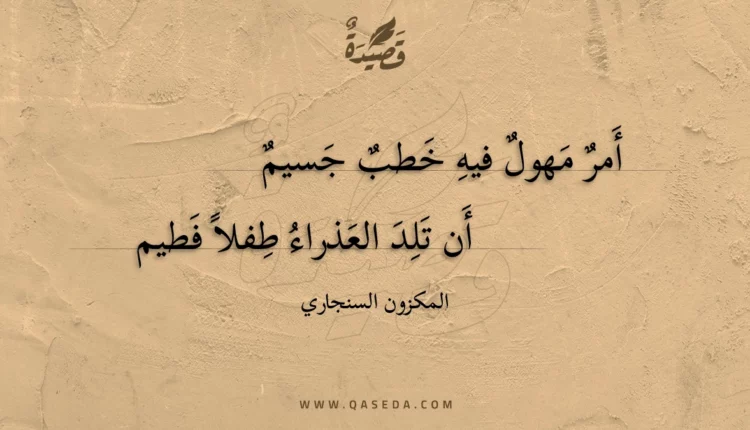 قَصِيْدَةٌ
أَمرٌ مَهولٌ فيهِ خَطبٌ جَسيمٌ
أَن تَلِدَ العَذراءُ طِفلاً فَطيم
المكزون السنجاري
WWW.QASEDA.COM